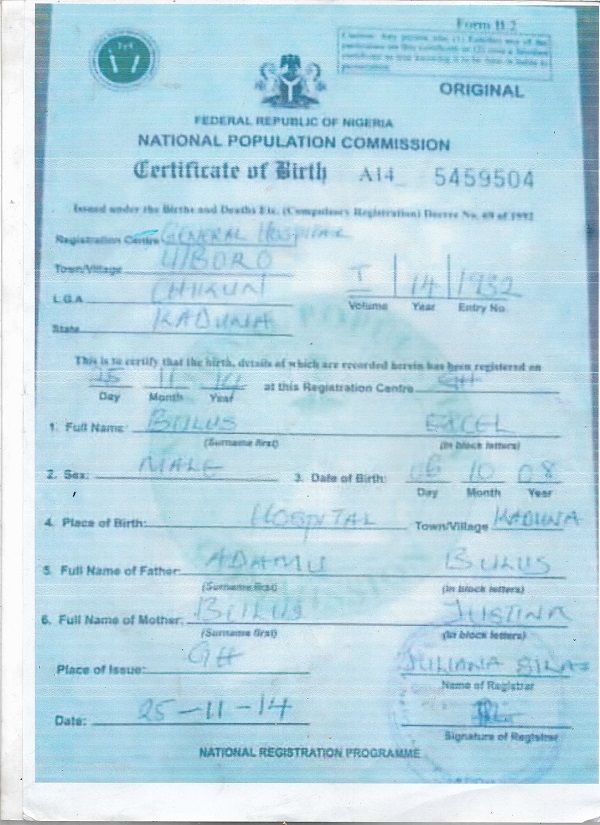 Form B.2
Caution: Any person who (1) falsifies any of the
particulars on this certificate or (2) uses a falsified
certificate as true knowing it to be false is liable to
prosecution
ORIGINAL
FEDERAL REPUBLIC OF NIGERIA
NATIONAL POPULATION COMMISSION
Certificate of Birth A14 5459504
Issued under the Births and Deaths Etc. (Compulsory Registration) Decree No. 69 of 1992
Registration Centre GENERAL HOSPITAL
Town/Village U/BORO
L.G.A CHIKUN
State KADUNA
I 14 1932
Volume Year Entry No.
This is to certify that the birth, details of which are recorded herein has been registered on
25 11 14 at this Registration Centre GH
Day Month Year
1. Full Name: BULUS EXCEL
(Surname first) (in block letters)
2. Sex: MALE 3. Date of Birth: 06 10 08
Day Month Year
4. Place of Birth: HOSPITAL Town/Village KADUNA
5. Full Name of Father: ADAMU BULUS
(Surname first) (in block letters)
6. Full Name of Mother: BULUS JUSTINA
(Surname first) (in block letters)
Place of Issue: GH JULIANA SILAS
Name of Registrar
Date: 25-11-14
Signature of Registrar
NATIONAL REGISTRATION PROGRAMME